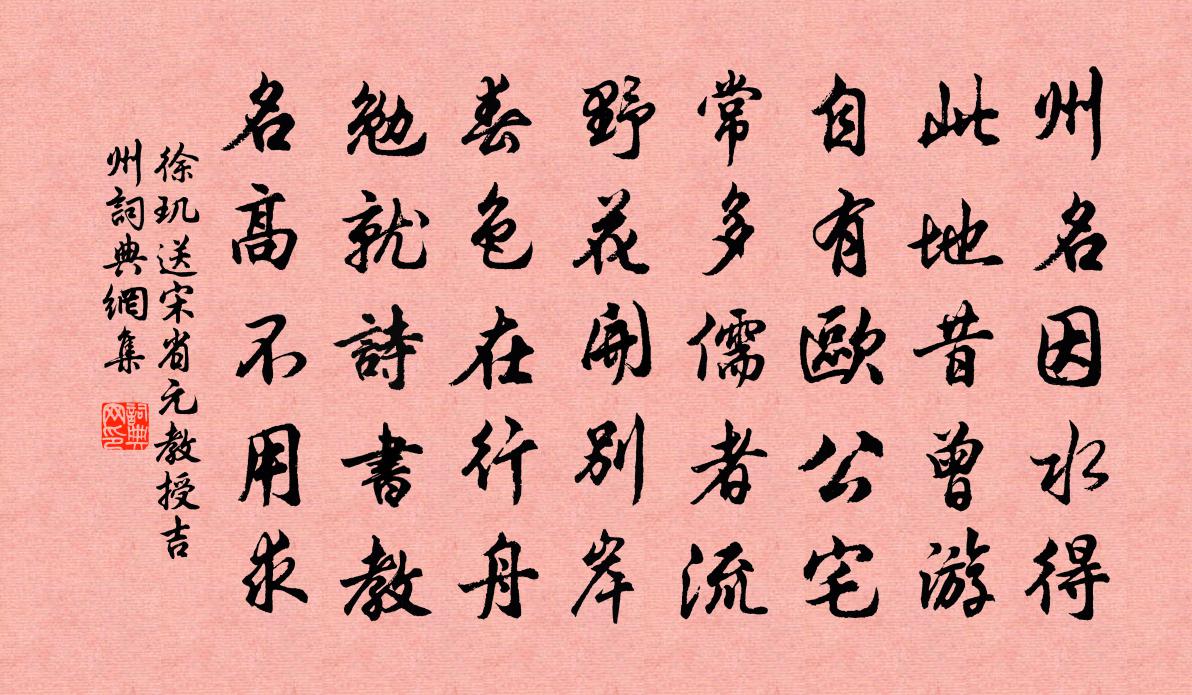 州名因水得
此地昔曾游
自有歐公宅
常多儒者流
野花開別岸
春色在行舟
勉就詩書教
名高不用求
徐玑送宋省元教授吉
州詞典網集
詞典
网印